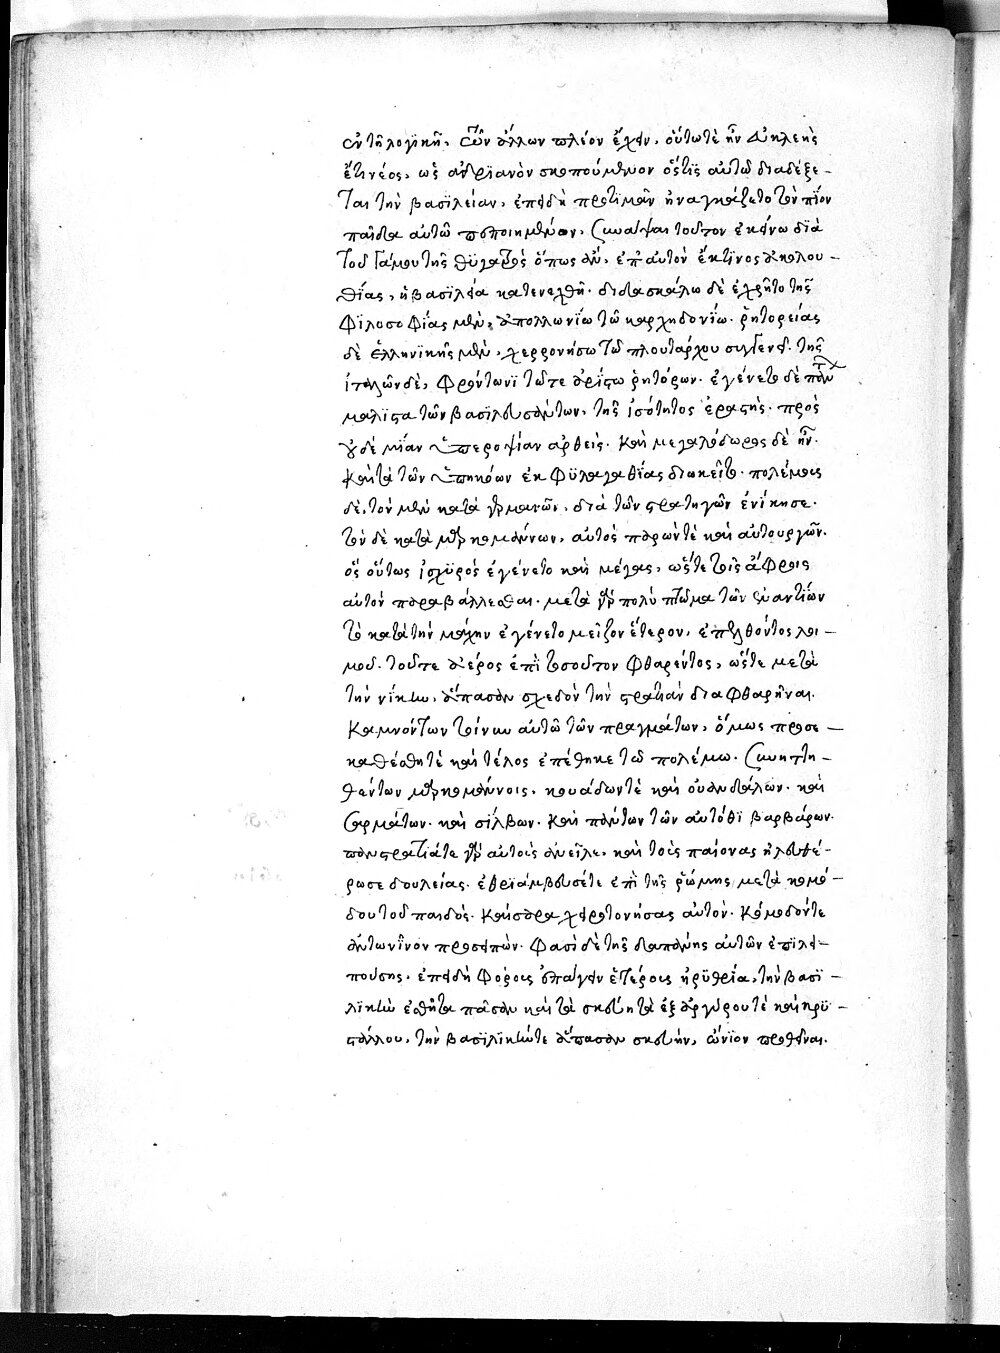 ἐν τῇ λογικῇ, τῶν ἄλλων πλέον ἔχειν. οὕτω τὲ ἦν ἀγκλεὴς
ἔτι νέος, ὡς ἀδριανὸν σκοπούμενον ὅστις αὐτῶ διαδέξε-
ται τὴν βασιλείαν, ἐπειδὴ προτιμᾶν ἠναγκάζετο τὸν πῖον
παῖδα αὐτῶ πεποιημένον, συνάψαι τοῦτον ἐκείνω διὰ
τοῦ γάμου τῆς θυγατρὸς ὅπως ἂν, ἐπ' αὐτὸν ἔκ τινος ἀκολου-
θίας, ἡ βασιλεία κατενεχθῆ. διδασκάλω δὲ ἐχρῆτο τῆς
φϊλοσοφίας μὲν, ἀπολλωνίω τῶ καρχηδονίω. ῥητορείας
δὲ ἑλληνικῆς μὲν, χερρονήσω τῶ πλουτάρχου συγγενεῖ. τῆς
ἰταλῶν δὲ, φρόντωνϊ τῶ τε ἀρίστω ῥητόρων. ἐγένετο δὲ πάντων
μάλιστα τῶν βασιλευσάντων, τῆς ἰσότητος ἐραστὴς. πρὸς
οὐδὲ μίαν ὑπεροψίαν ἀρθεὶς. καὶ μεγαλόδωρος δὲ ἦν.
καὶ τὰ τῶν ὑπηκόων ἐκ φϋλαγαθίας διωκεῖτο. πολέμοις
δὲ, τὸν μὲν κατὰ γερμανῶν, διὰ τῶν στρατηγῶν ἐνίκησε.
τὸν δὲ κατὰ μαρκομάννων, αὐτὸς παρών τὲ καὶ αὐτουργῶν.
ὃς οὕτως ἰσχϋρὸς ἐγένετο καὶ μέγας, ὥστε τοῖς ἄφροις
αὐτὸν παραβάλλεσθαι. μετὰ γὰρ πολὺ πτῶμα τῶν ἐναντίων
τὸ κατὰ τὴν μάχην ἐγένετο μεῖζον ἕτερον, ἐπελθόντος λοι-
μοῦ. τοῦ τε ἀέρος ἐπὶ τοσοῦτον φθαρέντος, ὥστε μετὰ
τὴν νίκην, ἅπασαν σχεδὸν τὴν στρατιὰν διαφθαρῆναι.
καμνόντων τοίνυν αὐτῶ τῶν πραγμάτων, ὅμως προσε-
καθέσθη τὲ καὶ τέλος ἐπέθηκε τῶ πολέμω. συνηττη-
θέντων μαρκομάννοις, κουάδων τὲ καὶ οὐανδάλων. καὶ
σαρμάτων. καὶ σίλβων. καὶ πάντων τῶν αὐτόθϊ βαρβάρων.
πᾶν στρατιά τε γὰρ αὐτοῖς ἀνεῖλε, καὶ τοὺς παίονας ἠλευθέ-
ρωσε δουλείας. ἐθριάμβευσέ τε ἐπὶ τῆς ῥώμης μετὰ κομό-
δου τοῦ παιδὸς. καίσαρα χειροτονήσας αὐτὸν. κόμοδόν τε
ἀντωνῖνον προσειπὼν. φασὶ δὲ τῆς δαπάνης αὐτῶν ἐπιλει-
πούσης, ἐπειδὴ φόροις ἐπάγειν ἑτέροις ἠρϋθρία, τὴν βασϊ-
λϊκὴν ἐσθῆτα πᾶσαν καὶ τὰ σκεύη τὰ ἐξ ἀργύρου τὲ καὶ κρϋ-
στάλλου, τὴν βασϊλϊκήν τε ἅπασαν σκευὴν, ὤνϊον προθεῖναι.